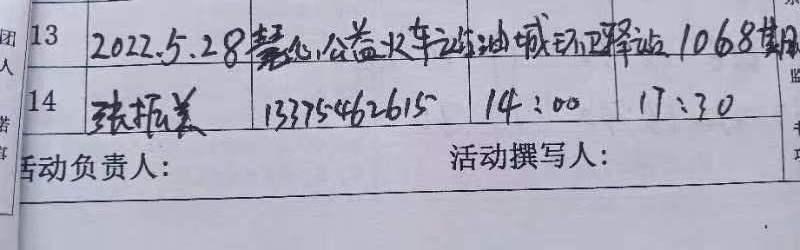 团
人
13 2022.5.28慧心公益火车站油城环卫驿站1068期
14 张振美 13375462615 14:00 17:30
诺
活动负责人: 活动撰写人:
监